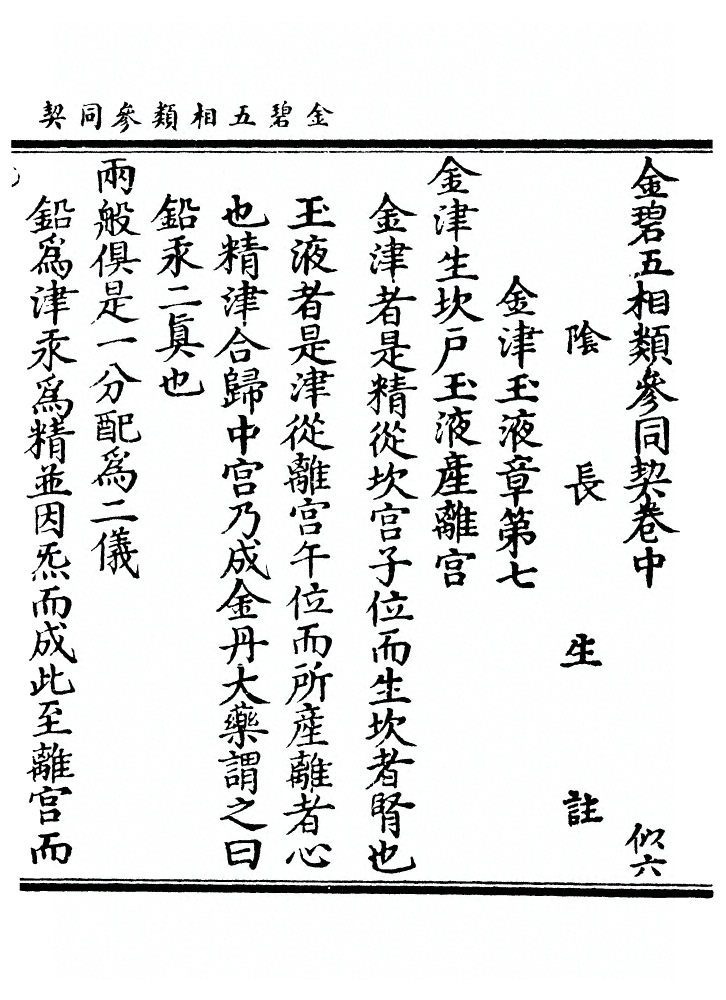 金碧五相類參同契
金碧五相類參同契卷中 似六
陰長生註
金津玉液章第七
金津生坎戶玉液產離宮
金津者是精從坎宮子位而生坎者腎也
玉液者是津從離宮午位而所產離者心
也精津合歸中宮乃成金丹大藥謂之曰
鉛汞二眞也
兩般俱是一分配爲二儀
鉛爲津汞爲精並因炁而成此至離宮而